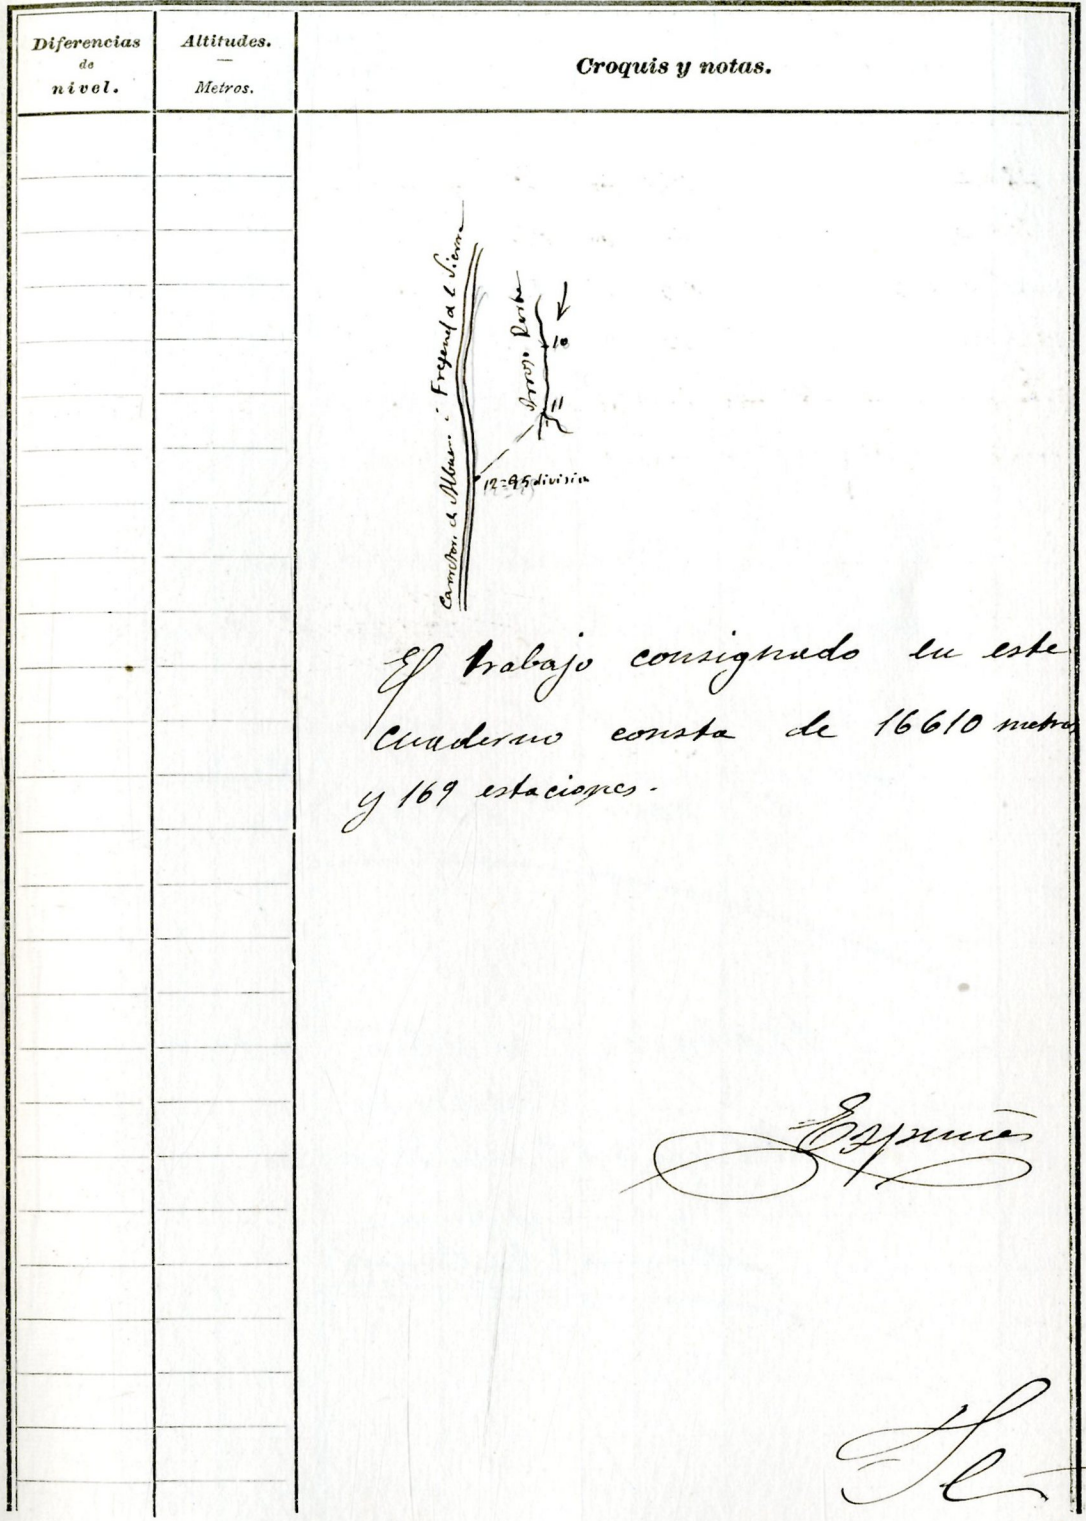 Diferencias
de
nivel.
Altitudes.
Metros.
Croquis y notas.
Fregenal de la Sierra
Arroyo
10
11
12=95 division
El trabajo consignado en este
cuaderno consta de 16610 metros
y 169 estaciones.